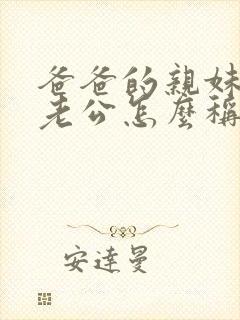 爸爸的親妹
老公怎麼稱
安達曼